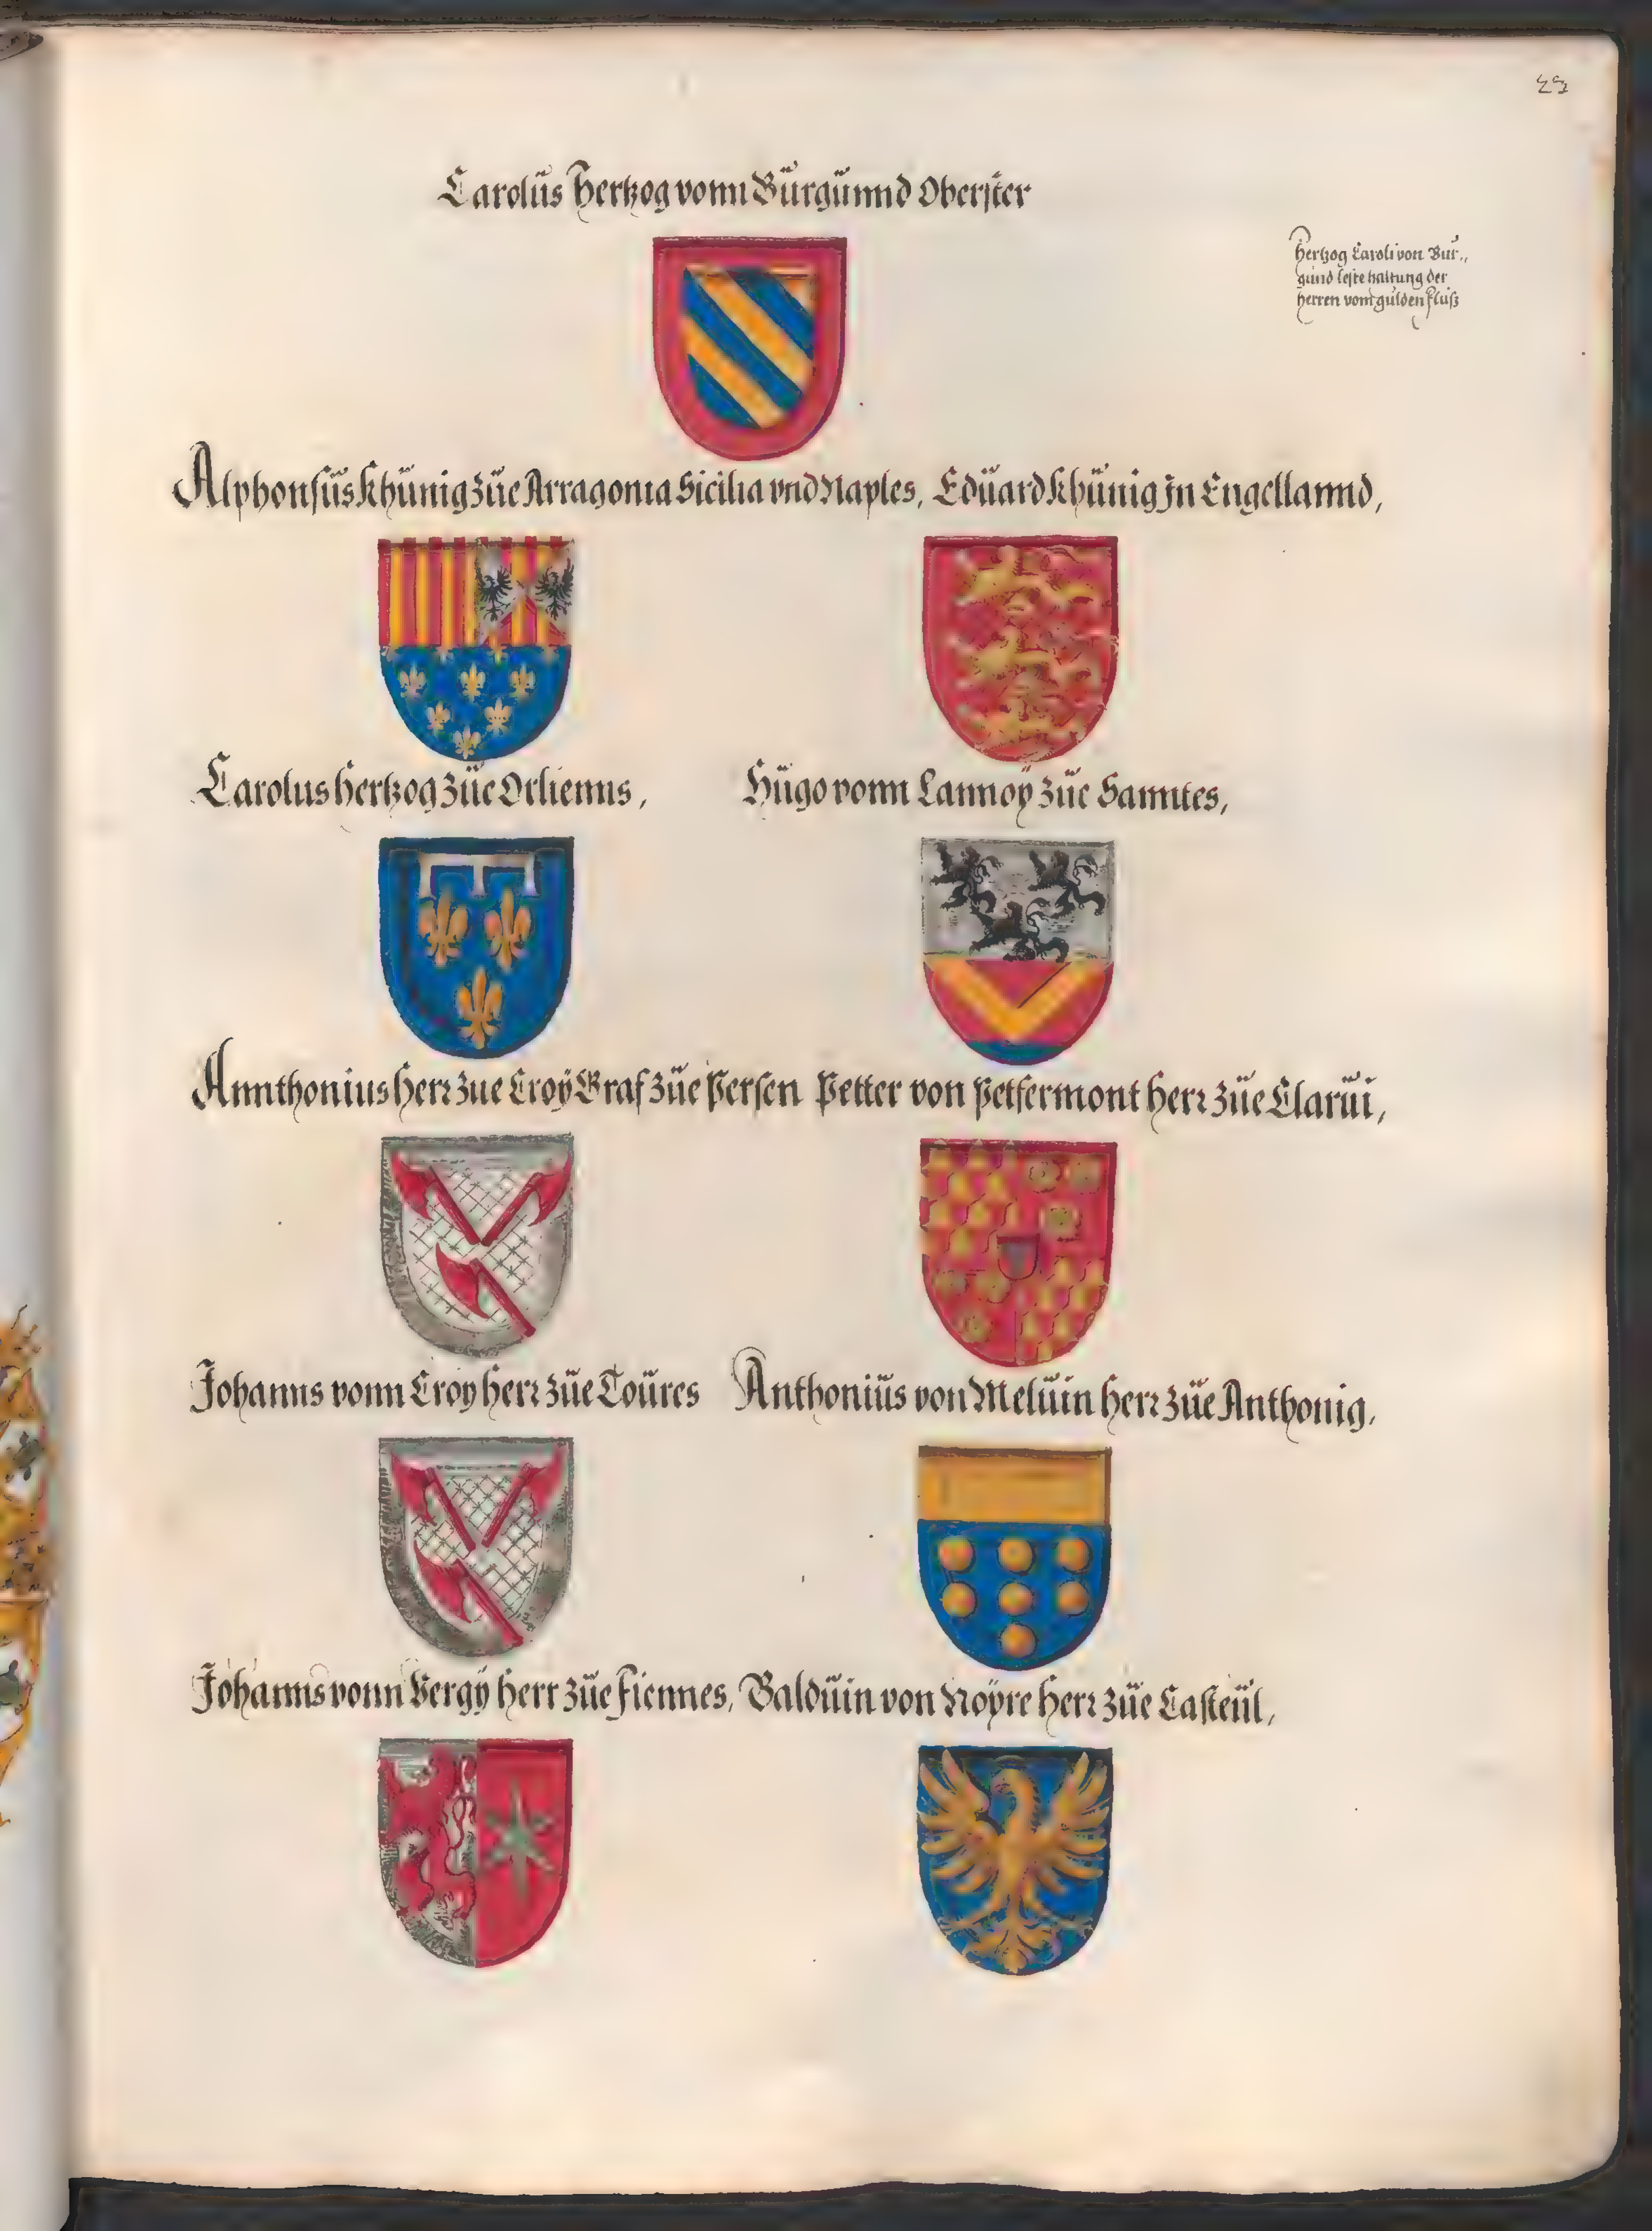 23
Carolüs Hertzog vonn Bürgünnd Oberster
Hertzog Caroli von Bur„
gund leste haltung der
herren vom gulden Fluß
Alphonsüs Khünig züe Arragonia Sicilia vnd Naples, Edüard Khünig In Engellannd,
Carolus Hertzog züe Orlienns, Hügo vonn Lannoy züe Sanntes,
Annthonius Herr züe Croÿ Graf züe Persen Petter von Petfermont Herr züe Clarüi,
Johanns vonn Croy Herr züe Toüres Anthoniüs von Melüin Herr züe Anthonig,
Johanns vonn Vergÿ Herr züe Fiennes, Baldüin von Noyre Herr züe Casteül,